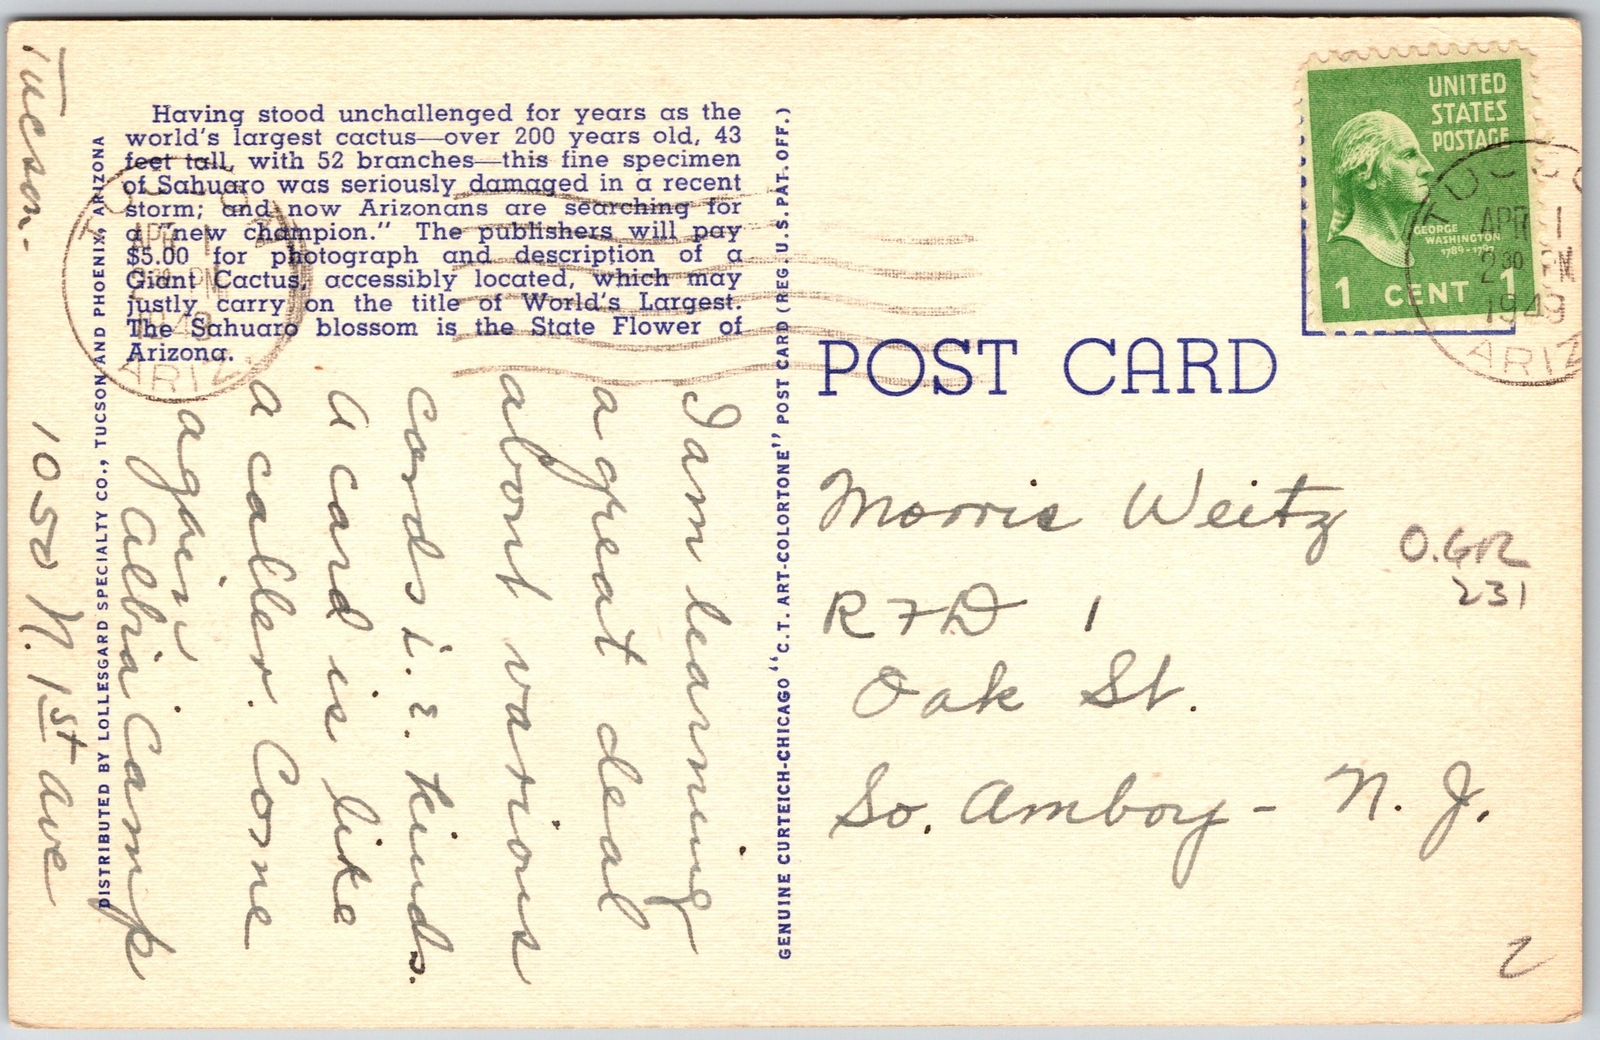 Having stood unchallenged for years as the
world's largest cactus—over 200 years old, 43
feet tall, with 52 branches—this fine specimen
of Sahuaro was seriously damaged in a recent
storm; and now Arizonans are searching for
a "new champion." The publishers will pay
$5.00 for photograph and description of a
Giant Cactus, accessibly located, which may
justly carry on the title of World's Largest.
The Sahuaro blossom is the State Flower of
Arizona.
I am learning
a great deal
about various
cards i. e. kinds.
A card is like
a caller. Come
again
Albia Camp
1050 N. 1st Ave
Tucson-
DISTRIBUTED BY LOLLESGARD SPECIALTY CO., TUCSON AND PHOENIX, ARIZONA
GENUINE CURTEICH-CHICAGO "C.T. ART-COLORTONE" POST CARD (REG U.S. PAT. OFF.)
POST CARD
UNITED
STATES
POSTAGE
GEORGE
WASHINGTON
1789-1797
1 CENT 1
TUCSO
APR 1
2 30 PM
1949
ARIZ
APR 1
PM
ARIZ
Morris Weitz
RFD 1
Oak St.
So. Amboy - N. J.
O.GR
231
2